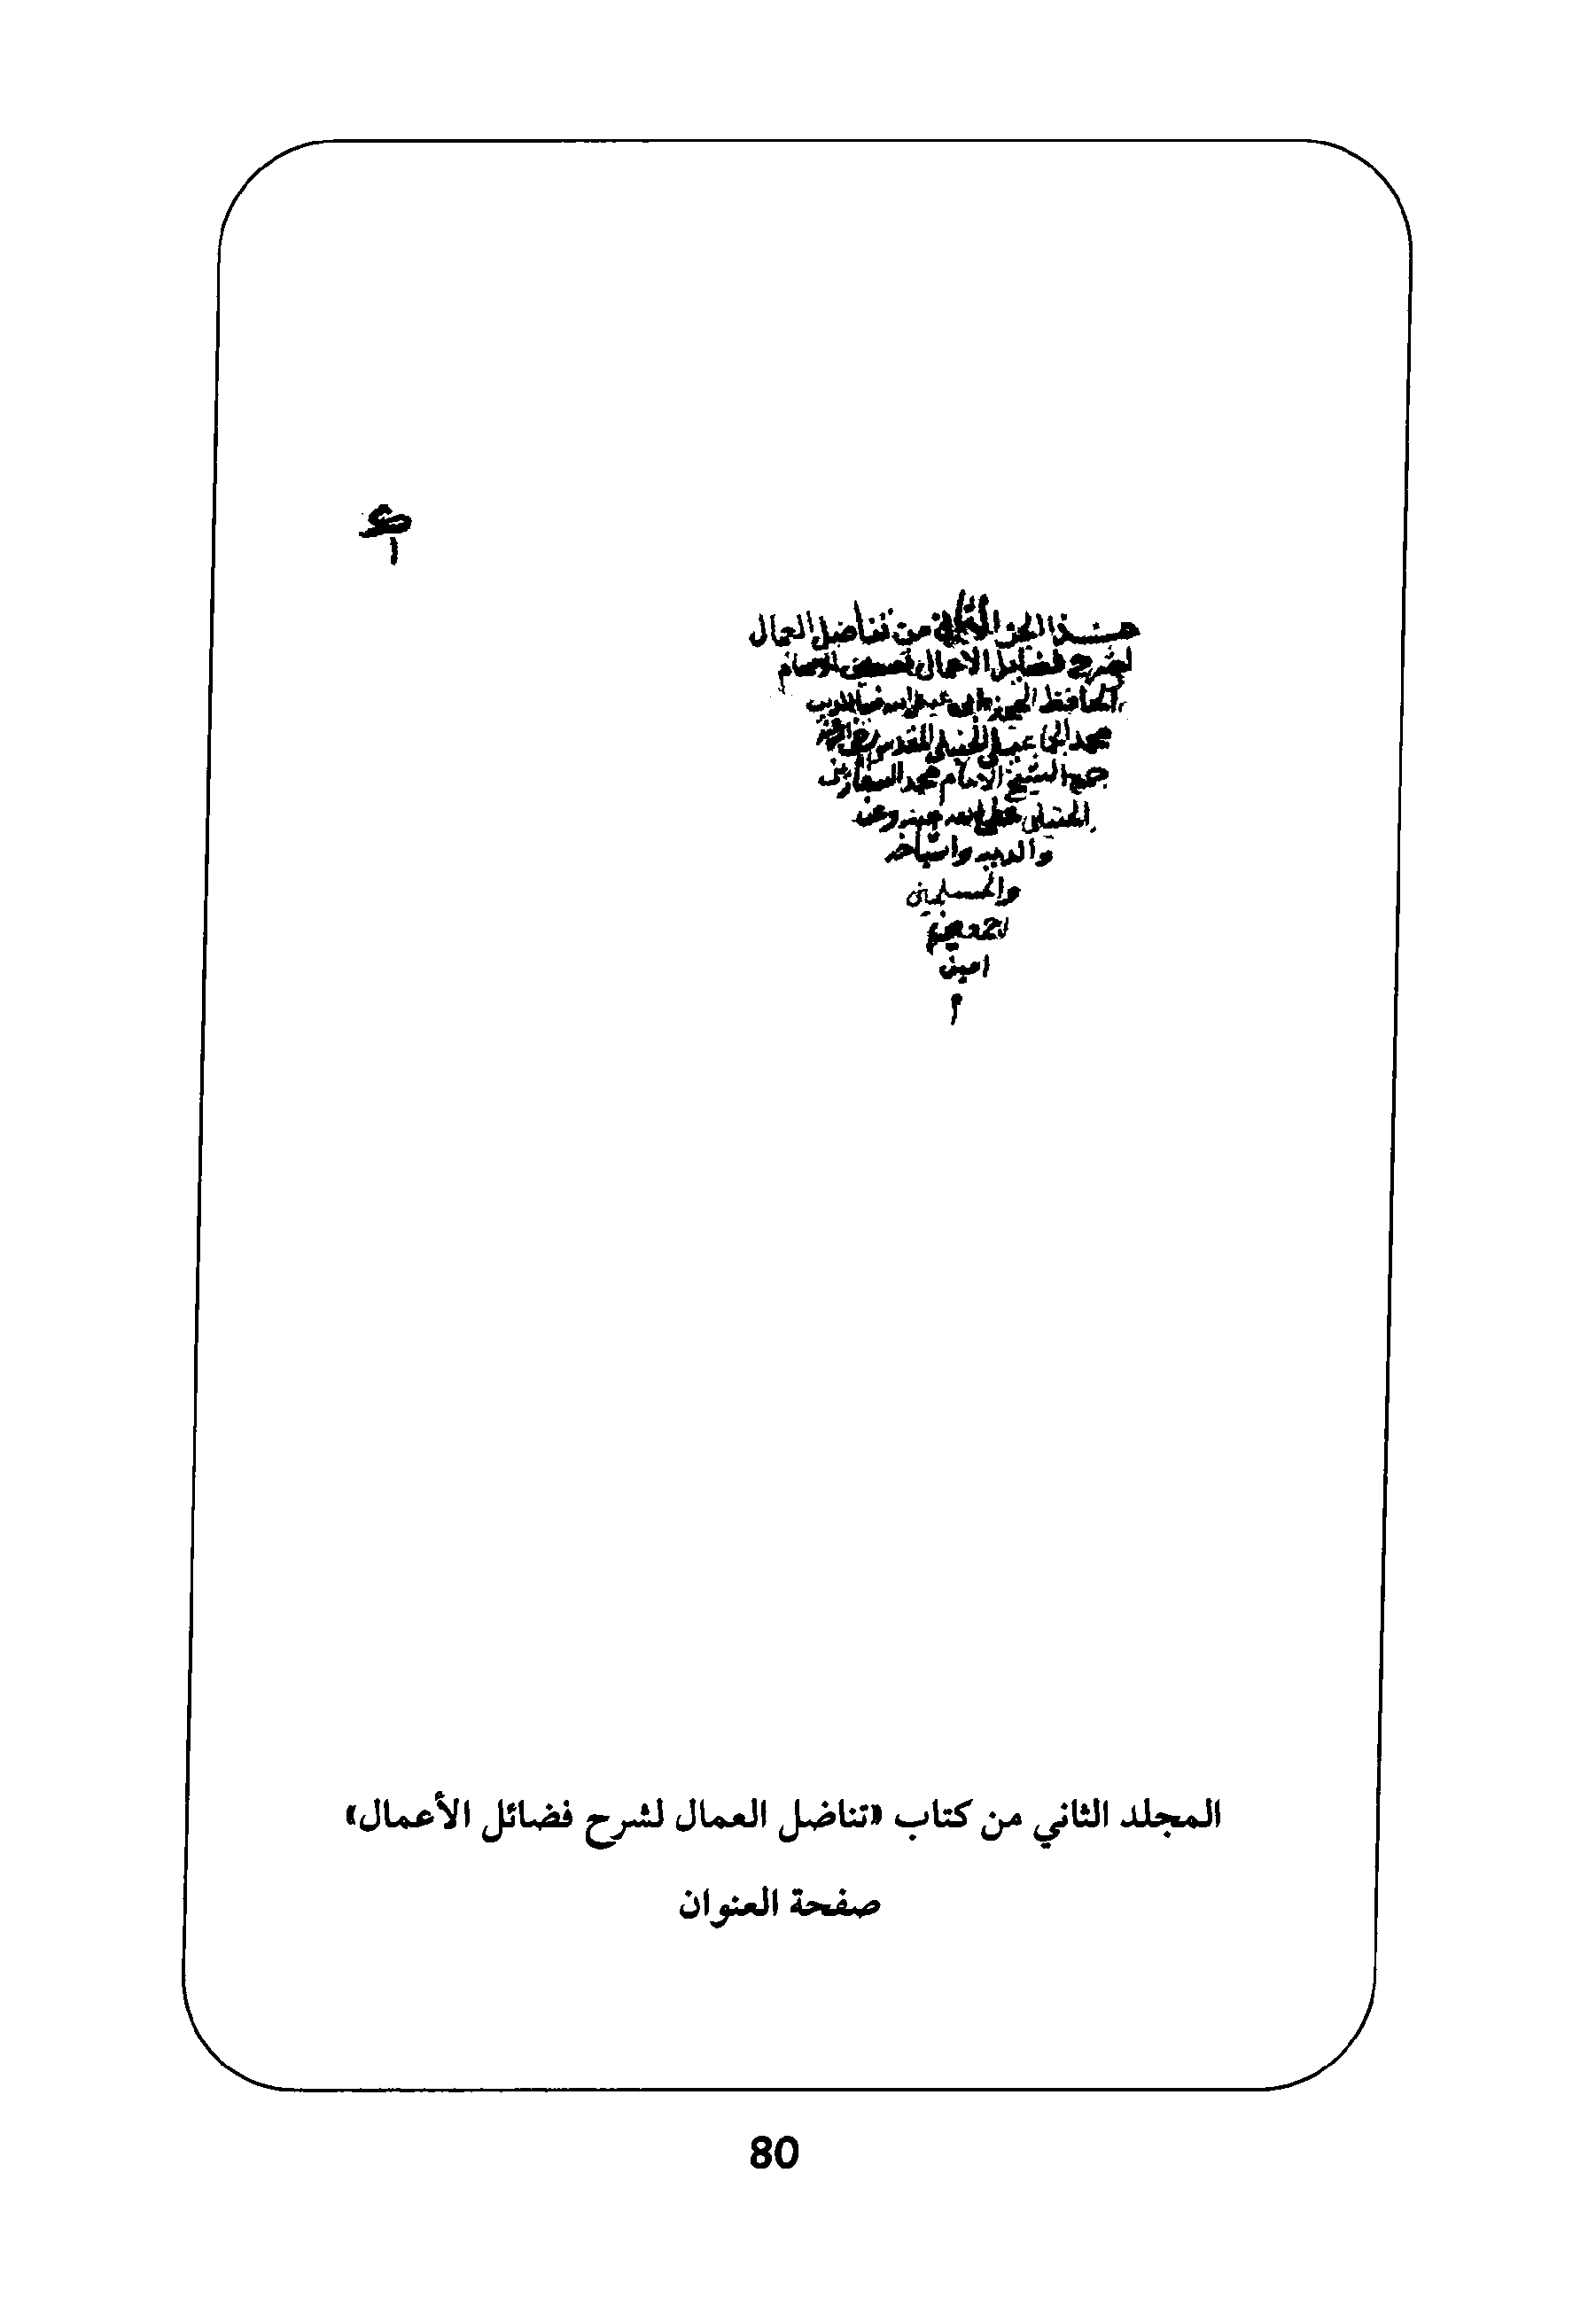 هذا الجزء الثاني من تناضل العمال
لشرح فضايل الاعمال تصنيف الامام
الحافظ ابي عبد الله ضيا الدين
محمد الحنبلي المقدسي رضي الله عنه
جمع الشيخ الامام محمد السفاريني
الحنبلي عفى الله عنه وعن
والديه واشياخه
والمسلمين
اجمعين
امين
م
المجلد الثاني من كتاب «تناضل العمال لشرح فضائل الأعمال»
صفحة العنوان
80